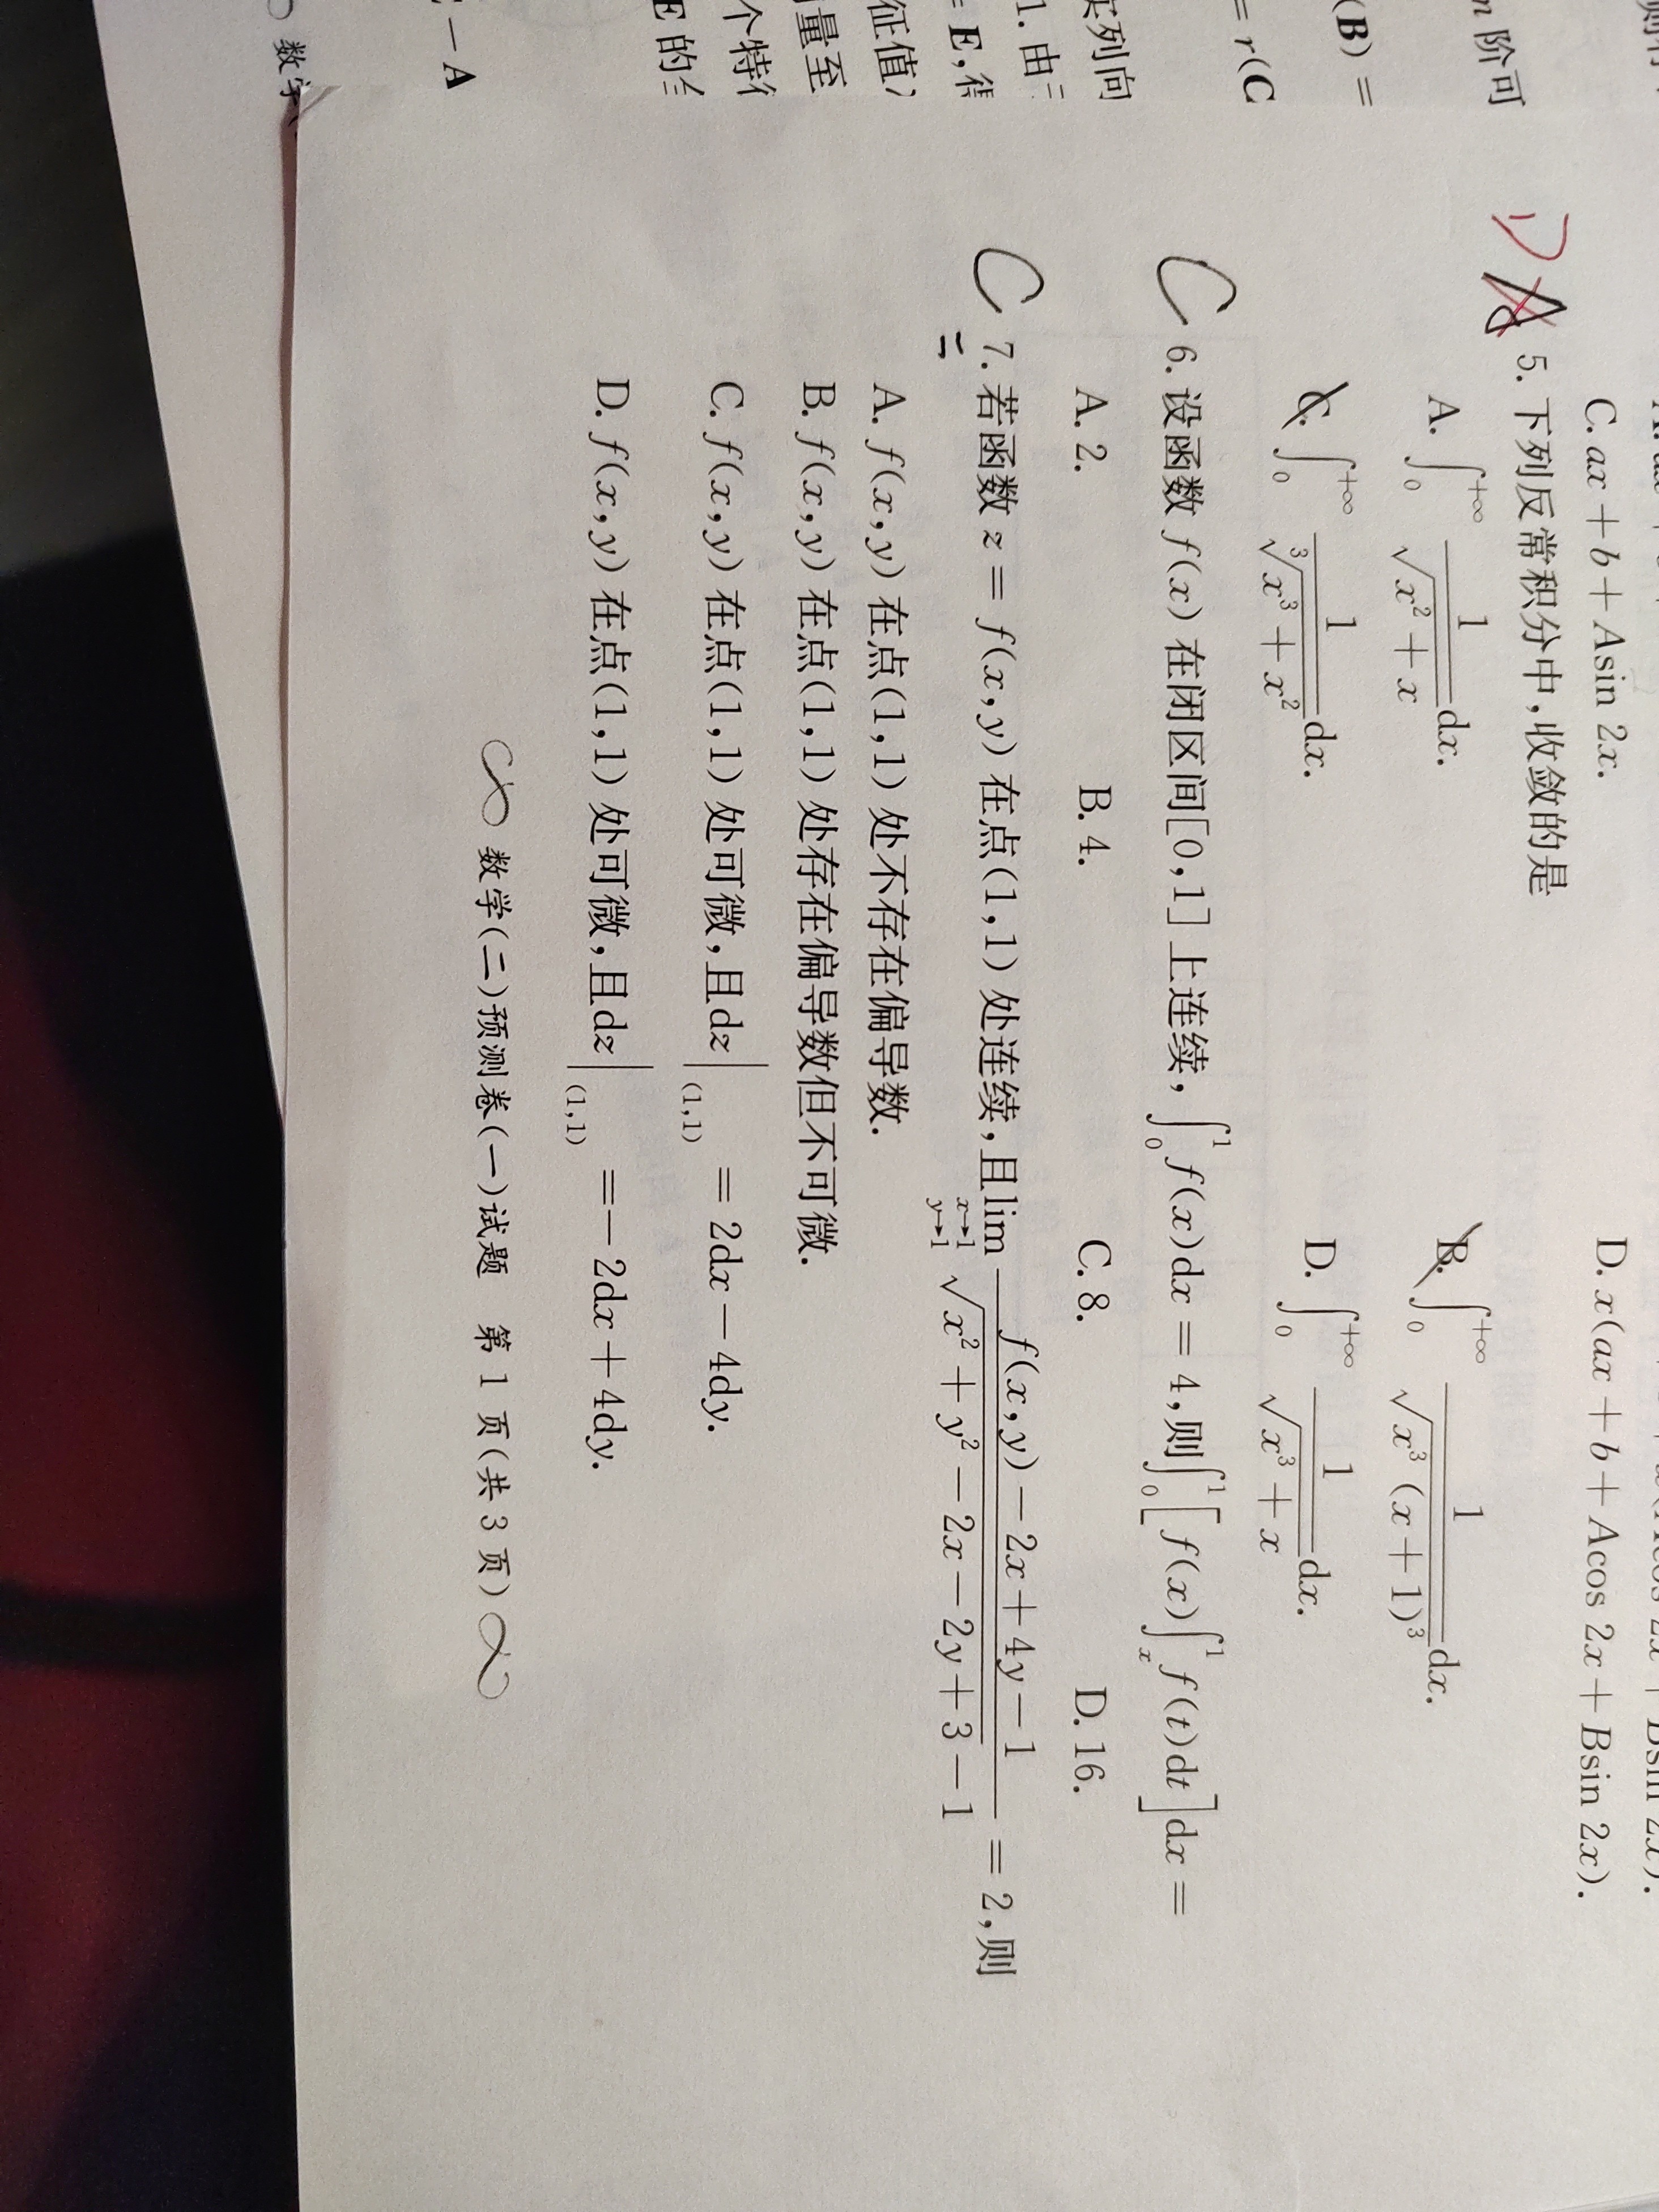 C. ax + b + Asin 2x.    D. x(ax + b + Acos 2x + Bsin 2x).
D A 5. 下列反常积分中,收敛的是
A. ∫₀^{+∞} 1/√(x² + x) dx.    B. ∫₀^{+∞} 1/√(x³(x + 1)³) dx.
C. ∫₀^{+∞} 1/∛(x³ + x²) dx.    D. ∫₀^{+∞} 1/√(x³ + x) dx.
C 6. 设函数 f(x) 在闭区间[0,1] 上连续, ∫₀¹ f(x)dx = 4,则∫₀¹[f(x)∫ₓ¹ f(t)dt]dx =
A. 2.    B. 4.    C. 8.    D. 16.
C 7. 若函数 z = f(x,y) 在点(1,1) 处连续,且lim_{x→1, y→1} (f(x,y) − 2x + 4y − 1)/(√(x² + y² − 2x − 2y + 3) − 1) = 2,则
A. f(x,y) 在点(1,1) 处不存在偏导数.
B. f(x,y) 在点(1,1) 处存在偏导数但不可微.
C. f(x,y) 在点(1,1) 处可微,且dz|_(1,1) = 2dx − 4dy.
D. f(x,y) 在点(1,1) 处可微,且dz|_(1,1) = − 2dx + 4dy.
数学(二)预测卷(一)试题 第 1 页(共 3 页)
阶可
(B) =
= r(C
列向
1. 由
= E,
征值
量至
个特
E 的
− A
数学